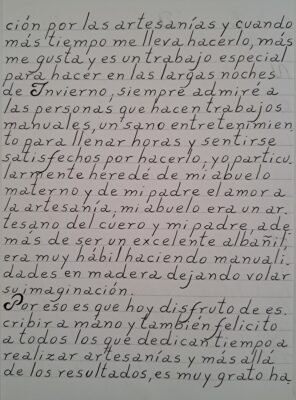 ción por las artesanías y cuando
más tiempo me lleva hacerlo, más
me gusta y es un trabajo especial
para hacer en las largas noches
de Invierno, siempre admiré a
las personas que hacen trabajos
manuales, un sano entretenimien
to para llenar horas y sentirse
satisfechos por hacerlo, yo particu.
larmente heredé de mi abuelo
materno y de mi padre el amor a
la artesanía, mi abuelo era un ar.
tesano del cuero y mi padre, ade.
más de ser un excelente albañil,
era muy hábil haciendo manuali.
dades en madera dejando volar
su imaginación.
Por eso es que hoy disfruto de es.
cribir a máno y también felicito
a todos los que dedican tiempo a
realizar artesanías y más allá
de los resultados, es muy grato ha.